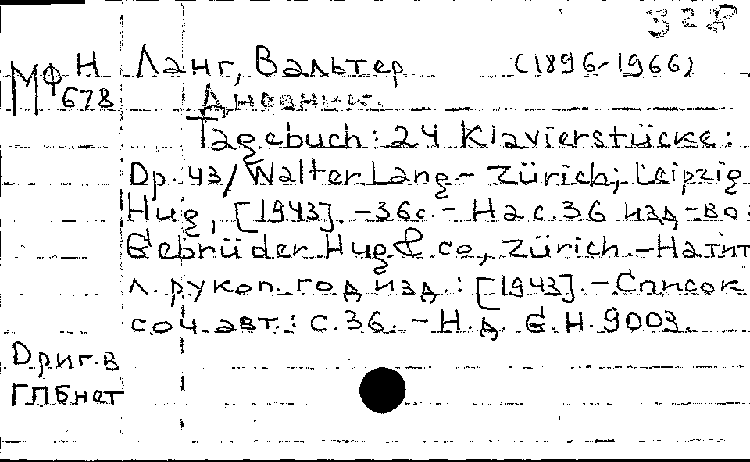 328
МФ Н Ланг, Вальтер (1896-1966)
678 Дневник.
Tagebuch: 24 Klavierstücke:
Op. 43/ Walter Lang - Zürich; Leipzig
Hug, [1943]. - 36с. - На с. 36 изд-во:
Gebrüder Hug & Co, Zürich. - На тит
л. рукоп. год изд.: [1943]. - Список
соч. авт.: с. 36. - Н.д. G.H. 9003.
Ориг. в
ГПБ нет